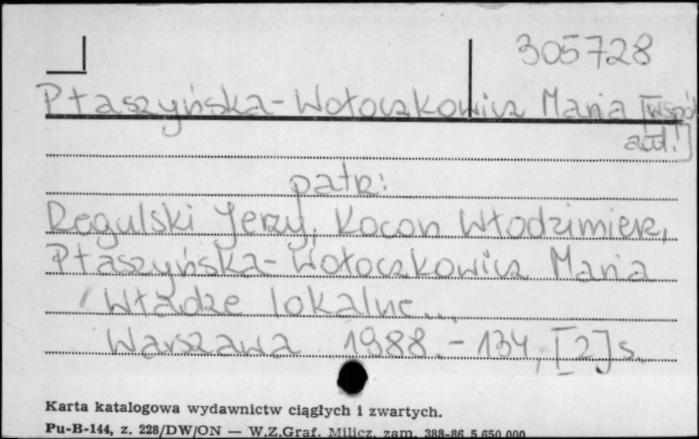 305728
Ptaszyńska-Wołoczkowicz Maria [współ
aut.]
patrz:
Regulski Jerzy, Kocon Włodzimierz,
Ptaszyńska-Wołoczkowicz Maria
Władze lokalne...
Warszawa 1988. - 134, [2] s.
Karta katalogowa wydawnictw ciągłych i zwartych.
Pu-B-144, z. 228/DW/ON — W.Z.Graf. Milicz, zam. 388-86 5 650 000